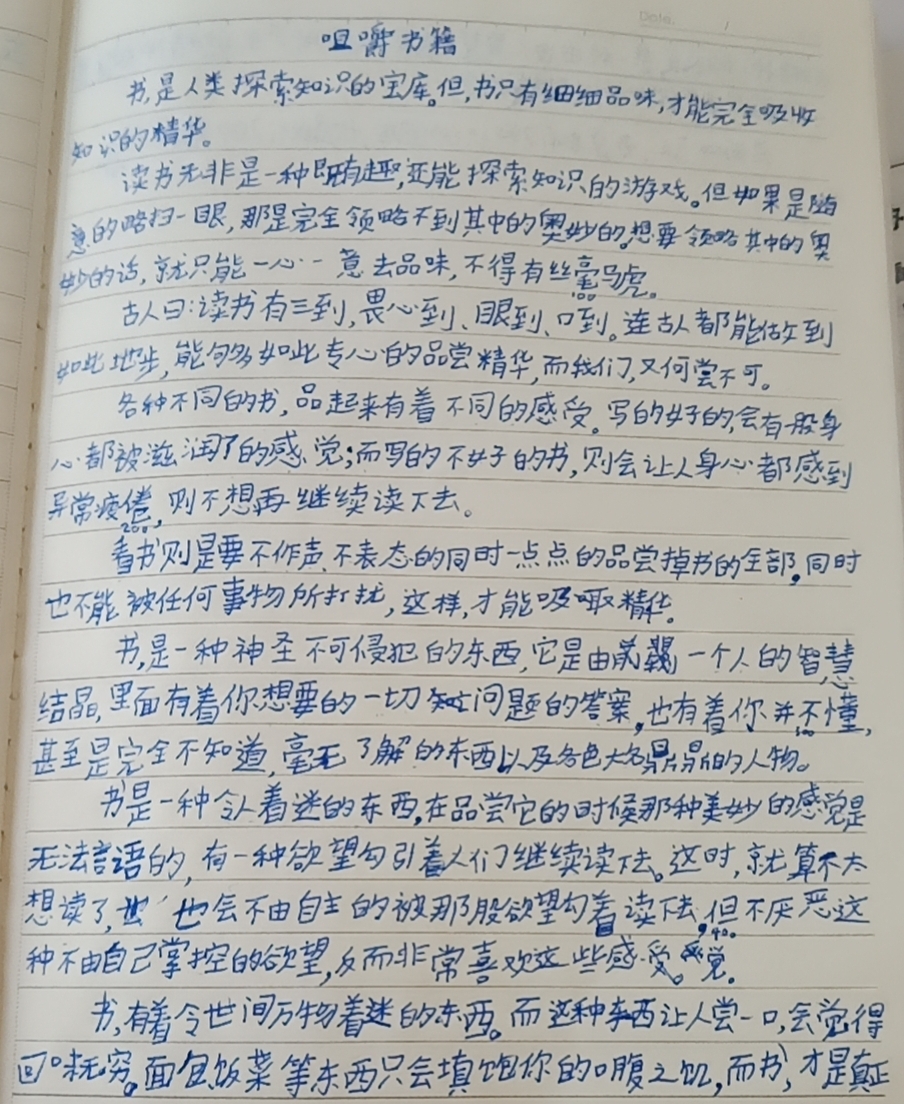 Date. /
咀嚼书籍
书,是人类探索知识的宝库。但,书只有细细品味,才能完全吸收
知识的精华。
读书无非是一种既有趣,还能探索知识的游戏。但如果是随
意的略扫一眼,那是完全领略不到其中的奥妙的。想要领略其中的奥
妙的话,就只能一心一意去品味,不得有丝毫马虎。
100
古人曰:读书有三到,畏心到、眼到、口到。连古人都能做到
如此地步,能够多如此专心的品尝精华,而我们,又何尝不可。
各种不同的书,品起来有着不同的感受。写的好的,会有一股身
心都被滋润了的感觉;而写的不好的书,则会让人身心都感到
异常疲倦,则不想再继续读下去。
200
看书则是要不作声、不表态的同时一点点的品尝掉书的全部,同时
也不能被任何事物所打扰,这样,才能吸取精华。
书,是一种神圣不可侵犯的东西,它是由 一个人的智慧
结晶,里面有着你想要的一切 问题的答案,也有着你并不懂,
甚至是完全不知道,毫无了解的东西以及各色大名鼎鼎的人物。
书是一种令人着迷的东西,在品尝它的时候那种美妙的感觉是
无法言语的,有一种欲望勾引着人们继续读下去。这时,就算不太
想读了,也会不由自主的被那股欲望勾着读下去,但不厌恶这
400
种不由自己掌控的欲望,反而非常喜欢这些感受。感觉。
书,有着令世间万物着迷的东西。而这种东西让人尝一口,会觉得
回味无穷。面包饭菜等东西只会填饱你的口腹之饥,而书,才是真正